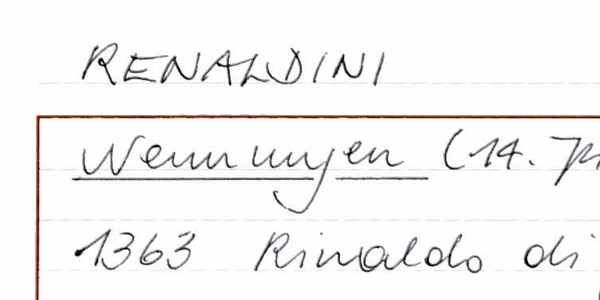 RENALDINI
Nennungen (14.
1363 Rinaldo di